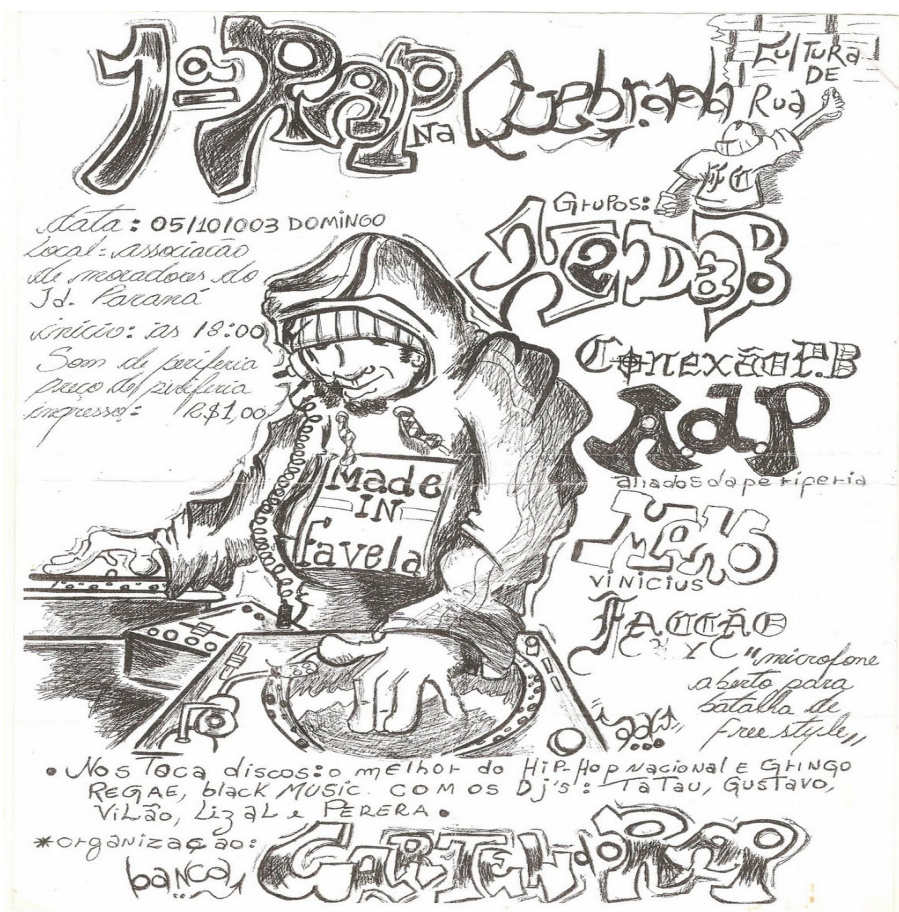 1ª Rap na Quebrada
CULTURA
DE
RUA
data: 05/10/003 DOMINGO
Local - associacão
de moradores do
Jd. Paraná
início: as 18:00
Som de periferia
preço de periferia
ingresso: R$1,00
GRUPOS:
DaB
CONEXÃO P.B
A.d.P
aliados da periferia
MANO
vinicius
FACCÃO
"microfone
aberto para
batalha de
free style"
Made
IN
favela
• Nos Toca discos: o melhor do Hip-Hop Nacional E GRINGO
REGAE, black MUSIC. COM OS Dj's: TATAU, GUSTAVO,
ViLão, LizaL e PERERA.
*organização:
banca
CARTEL do RAP